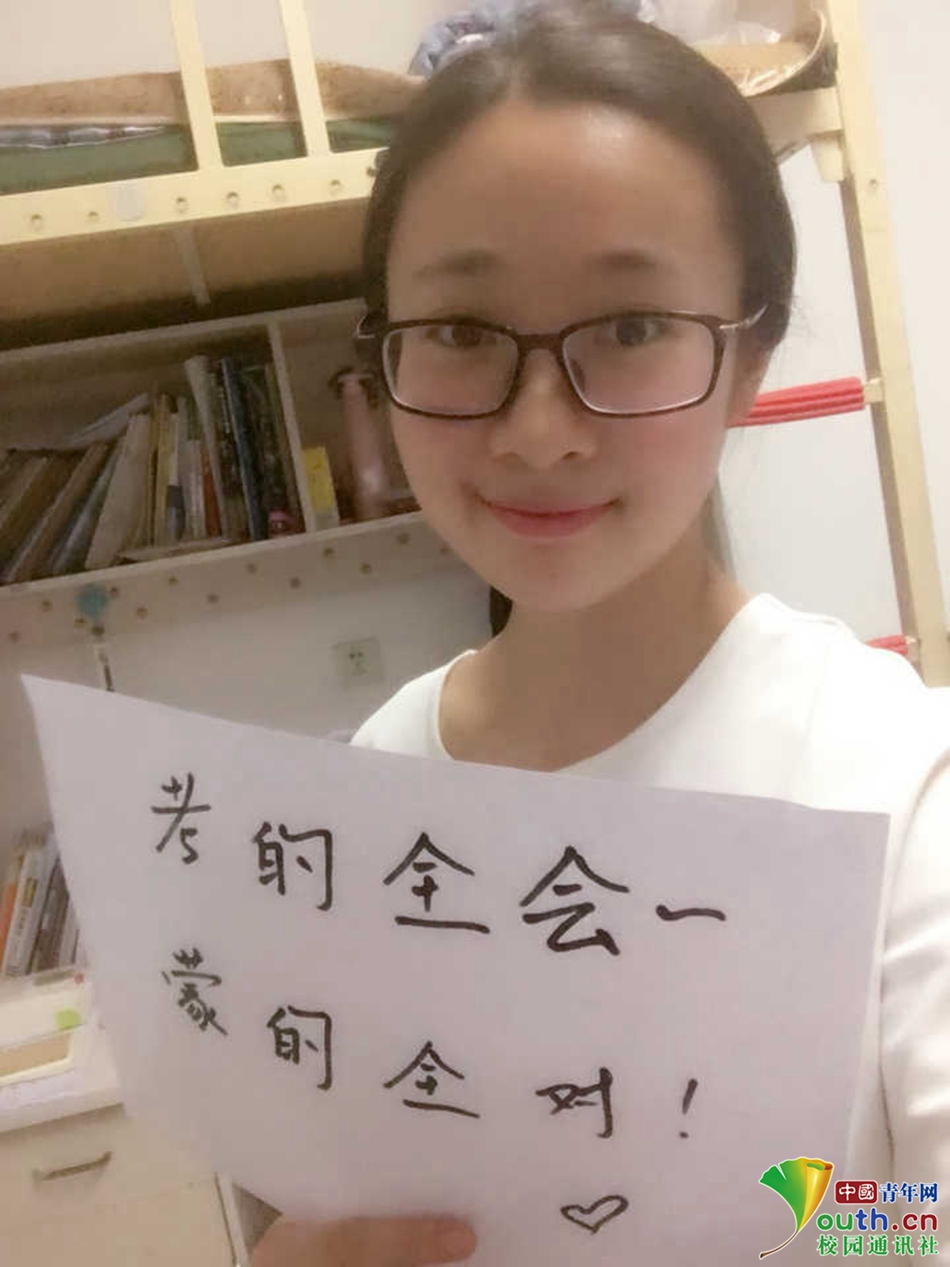 考的全会一
蒙的全对！
中國青年网
Youth.cn
校园通讯社